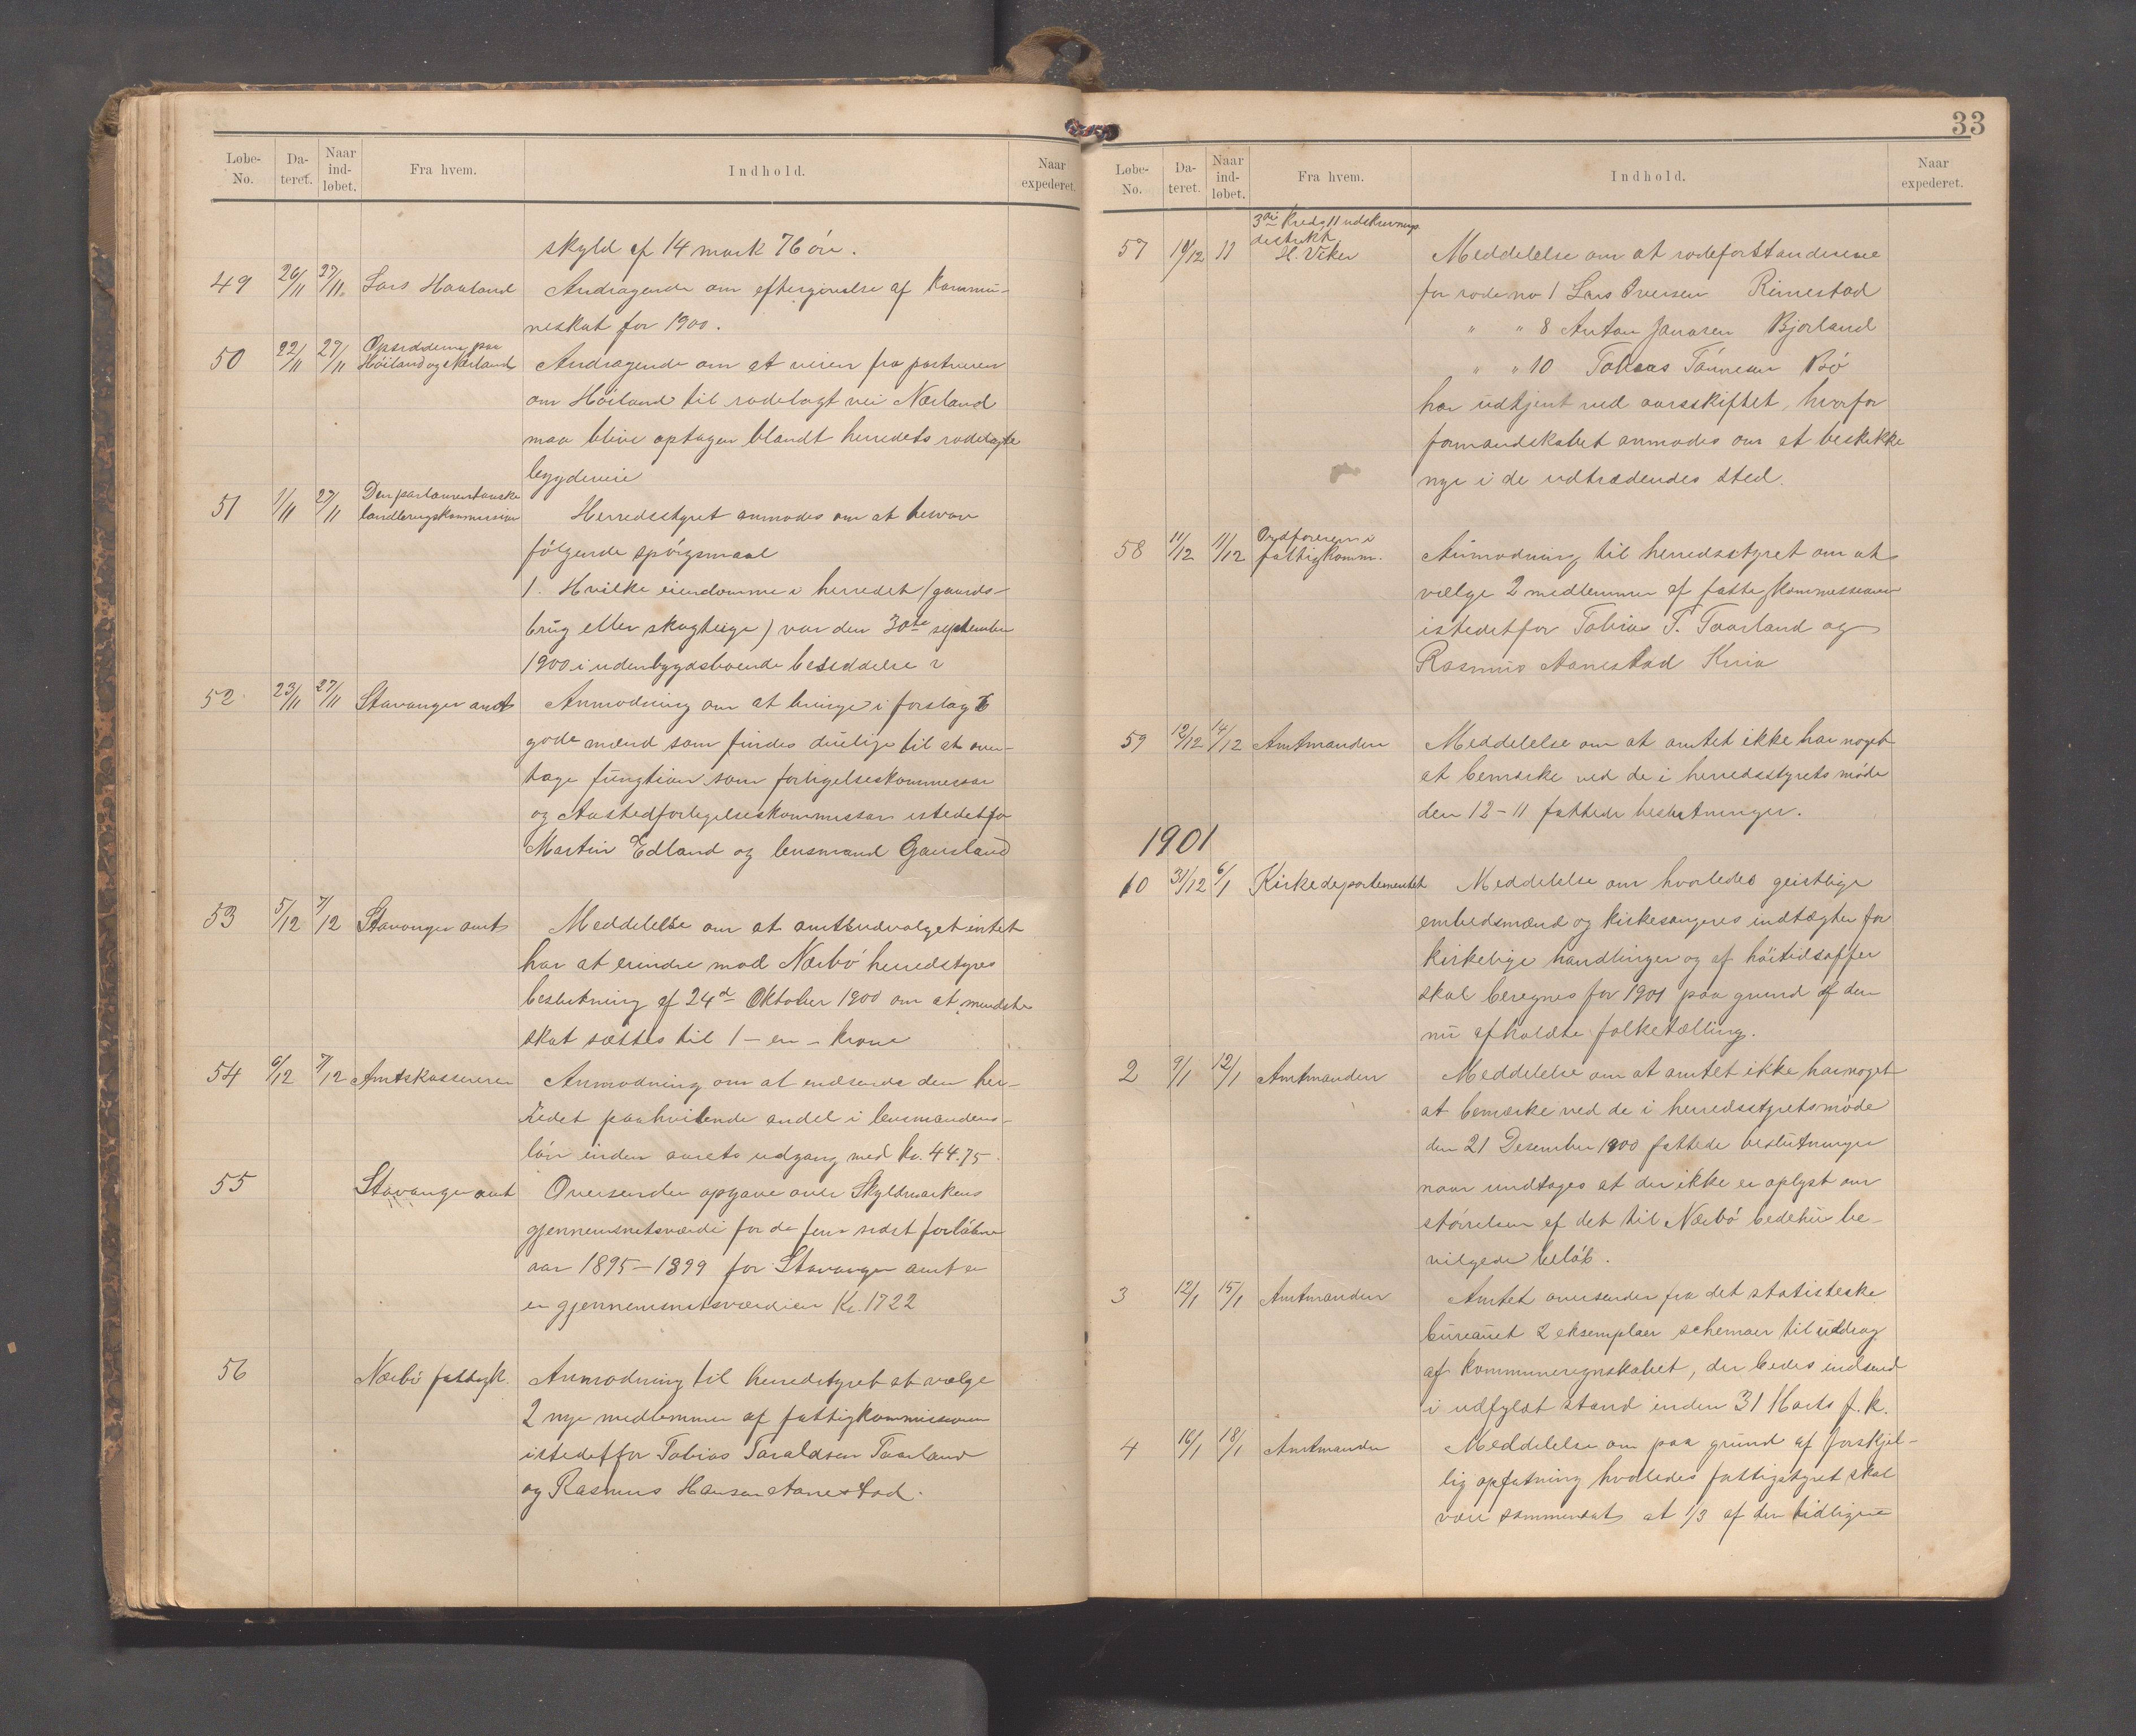 Løbe-No. Da-teret. Naar ind-løbet. Fra hvem. Indhold. Naar expederet.
skyld af 14 mark 76 öre.
49 26/11 27/11 Lars Haaland Andragende om eftergivelse af kommu-
neskat for 1900.
50 22/11 27/11 Opsidderne paa Höiland og Nærland Andragende om at veien fra postveien
om Höiland til rodelagt vei Nærland
maa blive optagen blandt herredets rodelagte
bygdeveie
51 1/11 27/11 Den parlamentariske landbrugskommission Herredsstyret anmodes om at besvare
fölgende spörgsmaal
1. Hvilke eiendomme i herredet (gaards-
brug eller skogteige) var den 30te september
1900 i udenbygdsboende besiddelse?
52 23/11 27/11 Stavanger amt Anmodning om at bringe i forslag
gode mænd som findes duelige til at over-
tage fungtion som forligelseskommissær
og istedetfor
Martin Edland og lensmand Gausland
53 5/12 7/12 Stavanger amt Meddelelse om at amtsudvalget intet
har at erindre mod Nærbö herredstyres
beslutning af 24d Oktober 1900 om at mindste
skat sættes til 1 - en - krone
54 6/12 7/12 Amtskassereren Anmodning om at indsende den her-
redet paahvilende andel i lensmandens-
lön inden aarets udgang med kr. 44.75.
55 Stavanger amt Oversender opgave over Skyldmarkens
gjennemsnitsværdi for de fem sidst forlöbne
aar 1895-1899 for Stavanger amt er
er gjennemsnitsværdien Kr. 1722
56 Nærbö fattigk. Anmodning til herredstyret at vælge
2 nye medlemmer af fattigkommissionen
istedetfor Tobias Taraldsen Taarland
og Rasmus Hansen Aanestad.
33
Løbe-No. Da-teret. Naar ind-løbet. Fra hvem. Indhold. Naar expederet.
57 10/12 11 3die kreds, 11 udskrivnings distrikt H. Viker Meddelelse om at rodeforstanderne
for rode no 1 Lars Iversen Rimestad
" " 8 Anton Jonasen Bjorland
" " 10 Tobias Tönnesen Bö
har udtjent ved aarsskiftet, hvorfor
formandskabet anmodes om at beskikke
nye i de udtrædendes sted.
58 11/12 11/12 Ordföreren i fattigkomm. Anmodning til herredsstyret om at
vælge 2 medlemmer af fattigkommissionen
istedetfor Tobias T. Taarland og
Rasmus Aanestad Kvia
59 12/12 14/12 Amtmanden Meddelelse om at amtet ikke har noget
at bemærke ved de i herredsstyrets möde
den 12-11 fattede beslutninger.
1901
10 31/12 6/1 Kirkedepartementet Meddelelse om hvorledes geistlige
embedsmænd og kirkesangeres indtægter for
kirkelige handlinger og af höitidsoffer
skal beregnes for 1901 paa grund af den
nu afholdte folketælling.
2 9/1 12/1 Amtmanden Meddelelse om at amtet ikke har noget
at bemærke ved de i herredsstyrets möde
den 21 Desember 1900 fattede beslutninger
naar undtages at der ikke er oplyst om
störrelsen af det til Nærbö bedehus be-
vilgede belöb.
3 12/1 15/1 Amtmanden Amtet oversender fra det statistiske
bureauet 2 eksemplaer schemaer til uddrag
af kommuneregnskabet, der bedes indsend
i udfyldt stand inden 31 Marts f. k.
4 16/1 18/1 Amtmanden Meddelelse om paa grund af forskjel-
lig opfatning hvorledes fattigstyret skal
være sammensat at 1/3 af den tidligere